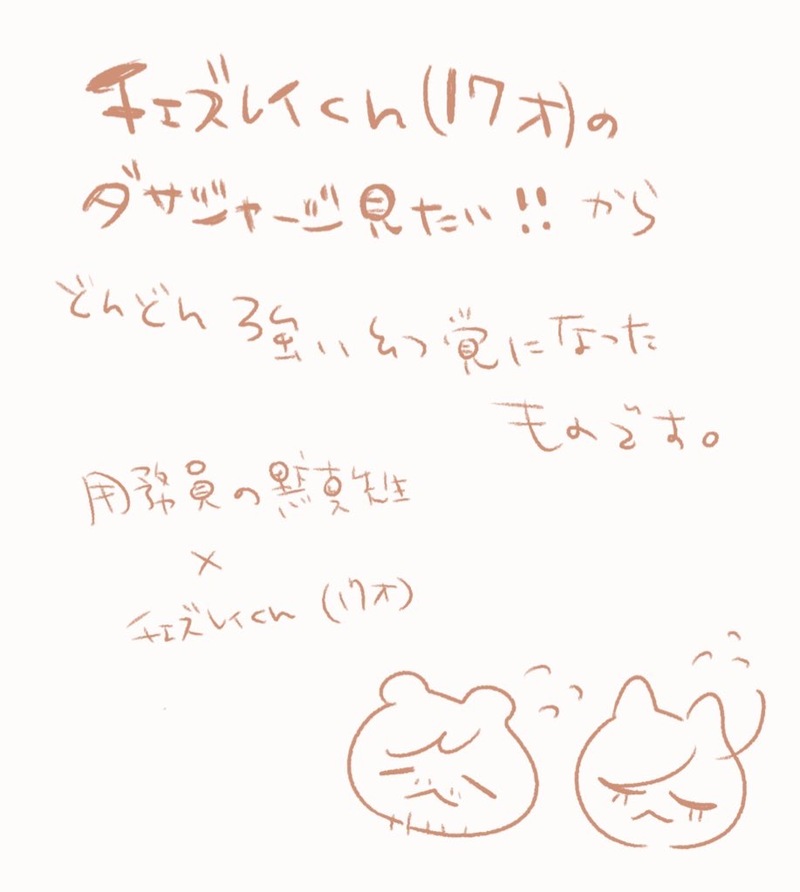 チェズレイくん(17才)の
ダサジャージ見たい!!から
どんどん強い幻覚になった
ものです。
用務員の黙真先生
×
チェズレイくん(17才)